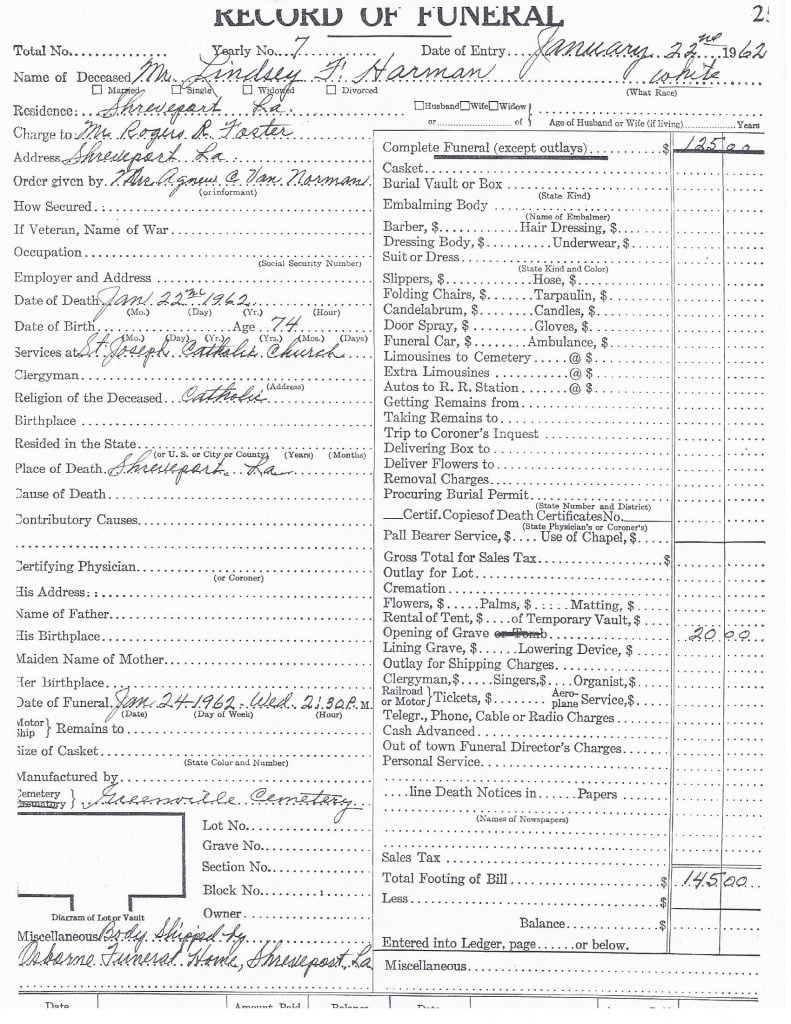 RECORD OF FUNERAL
Total No. Yearly No. 7 Date of Entry January 22nd 1962
Name of Deceased Mr. Lindsey F. Harman white
☐ Married ☐ Single ☐ Widowed ☐ Divorced (What Race)
Residence: Shreveport La.
☐ Husband ☐ Wife ☐ Widow
or of Age of Husband or Wife (if living) Years
Charge to Mr. Rogers R. Foster
Address Shreveport La
Order given by Mrs. Agnew C. Van Norman
(or informant)
How Secured
If Veteran, Name of War
Occupation
(Social Security Number)
Employer and Address
Date of Death Jan. 22nd 1962
(Mo.) (Day) (Yr.) (Hour)
Date of Birth Age 74
(Mo.) (Day) (Yr.) (Yrs.) (Mos.) (Days)
Services at St. Joseph Catholic Church
Clergyman
(Address)
Religion of the Deceased Catholic
Birthplace
Resided in the State
(or U. S. or City or County) (Years) (Months)
Place of Death Shreveport La
Cause of Death
Contributory Causes
Certifying Physician
(or Coroner)
His Address:
Name of Father
His Birthplace
Maiden Name of Mother
Her Birthplace
Date of Funeral Jan. 24-1962 Wed. 2:30 P.M.
(Date) (Day of Week) (Hour)
Motor
Ship } Remains to
Size of Casket
(State Color and Number)
Manufactured by
Cemetery
Crematory } Greenville Cemetery
Lot No.
Grave No.
Section No.
Block No.
Owner
Diagram of Lot or Vault
Miscellaneous Body Shipped by
Osborne Funeral Home, Shreveport, La
Complete Funeral (except outlays) $ 125 00
Casket
Burial Vault or Box
(State Kind)
Embalming Body
(Name of Embalmer)
Barber, $ Hair Dressing, $
Dressing Body, $ Underwear, $
Suit or Dress
(State Kind and Color)
Slippers, $ Hose, $
Folding Chairs, $ Tarpaulin, $
Candelabrum, $ Candles, $
Door Spray, $ Gloves, $
Funeral Car, $ Ambulance, $
Limousines to Cemetery @ $
Extra Limousines @ $
Autos to R. R. Station @ $
Getting Remains from
Taking Remains to
Trip to Coroner's Inquest
Delivering Box to
Deliver Flowers to
Removal Charges
Procuring Burial Permit
(State Number and District)
Certif. Copies of Death Certificates No.
(State Physician's or Coroner's)
Pall Bearer Service, $ Use of Chapel, $
Gross Total for Sales Tax $
Outlay for Lot
Cremation
Flowers, $ Palms, $ Matting, $
Rental of Tent, $ of Temporary Vault, $
Opening of Grave or Tomb 20 00
Lining Grave, $ Lowering Device, $
Outlay for Shipping Charges
Clergyman, $ Singers, $ Organist, $
Railroad or Motor } Tickets, $ Aero-plane Service, $
Telegr., Phone, Cable or Radio Charges
Cash Advanced
Out of town Funeral Director's Charges
Personal Service
line Death Notices in Papers
(Names of Newspapers)
Sales Tax
Total Footing of Bill $ 145 00
Less $
Balance $
Entered into Ledger, page or below.
Miscellaneous
Date Amount Paid Balance Date